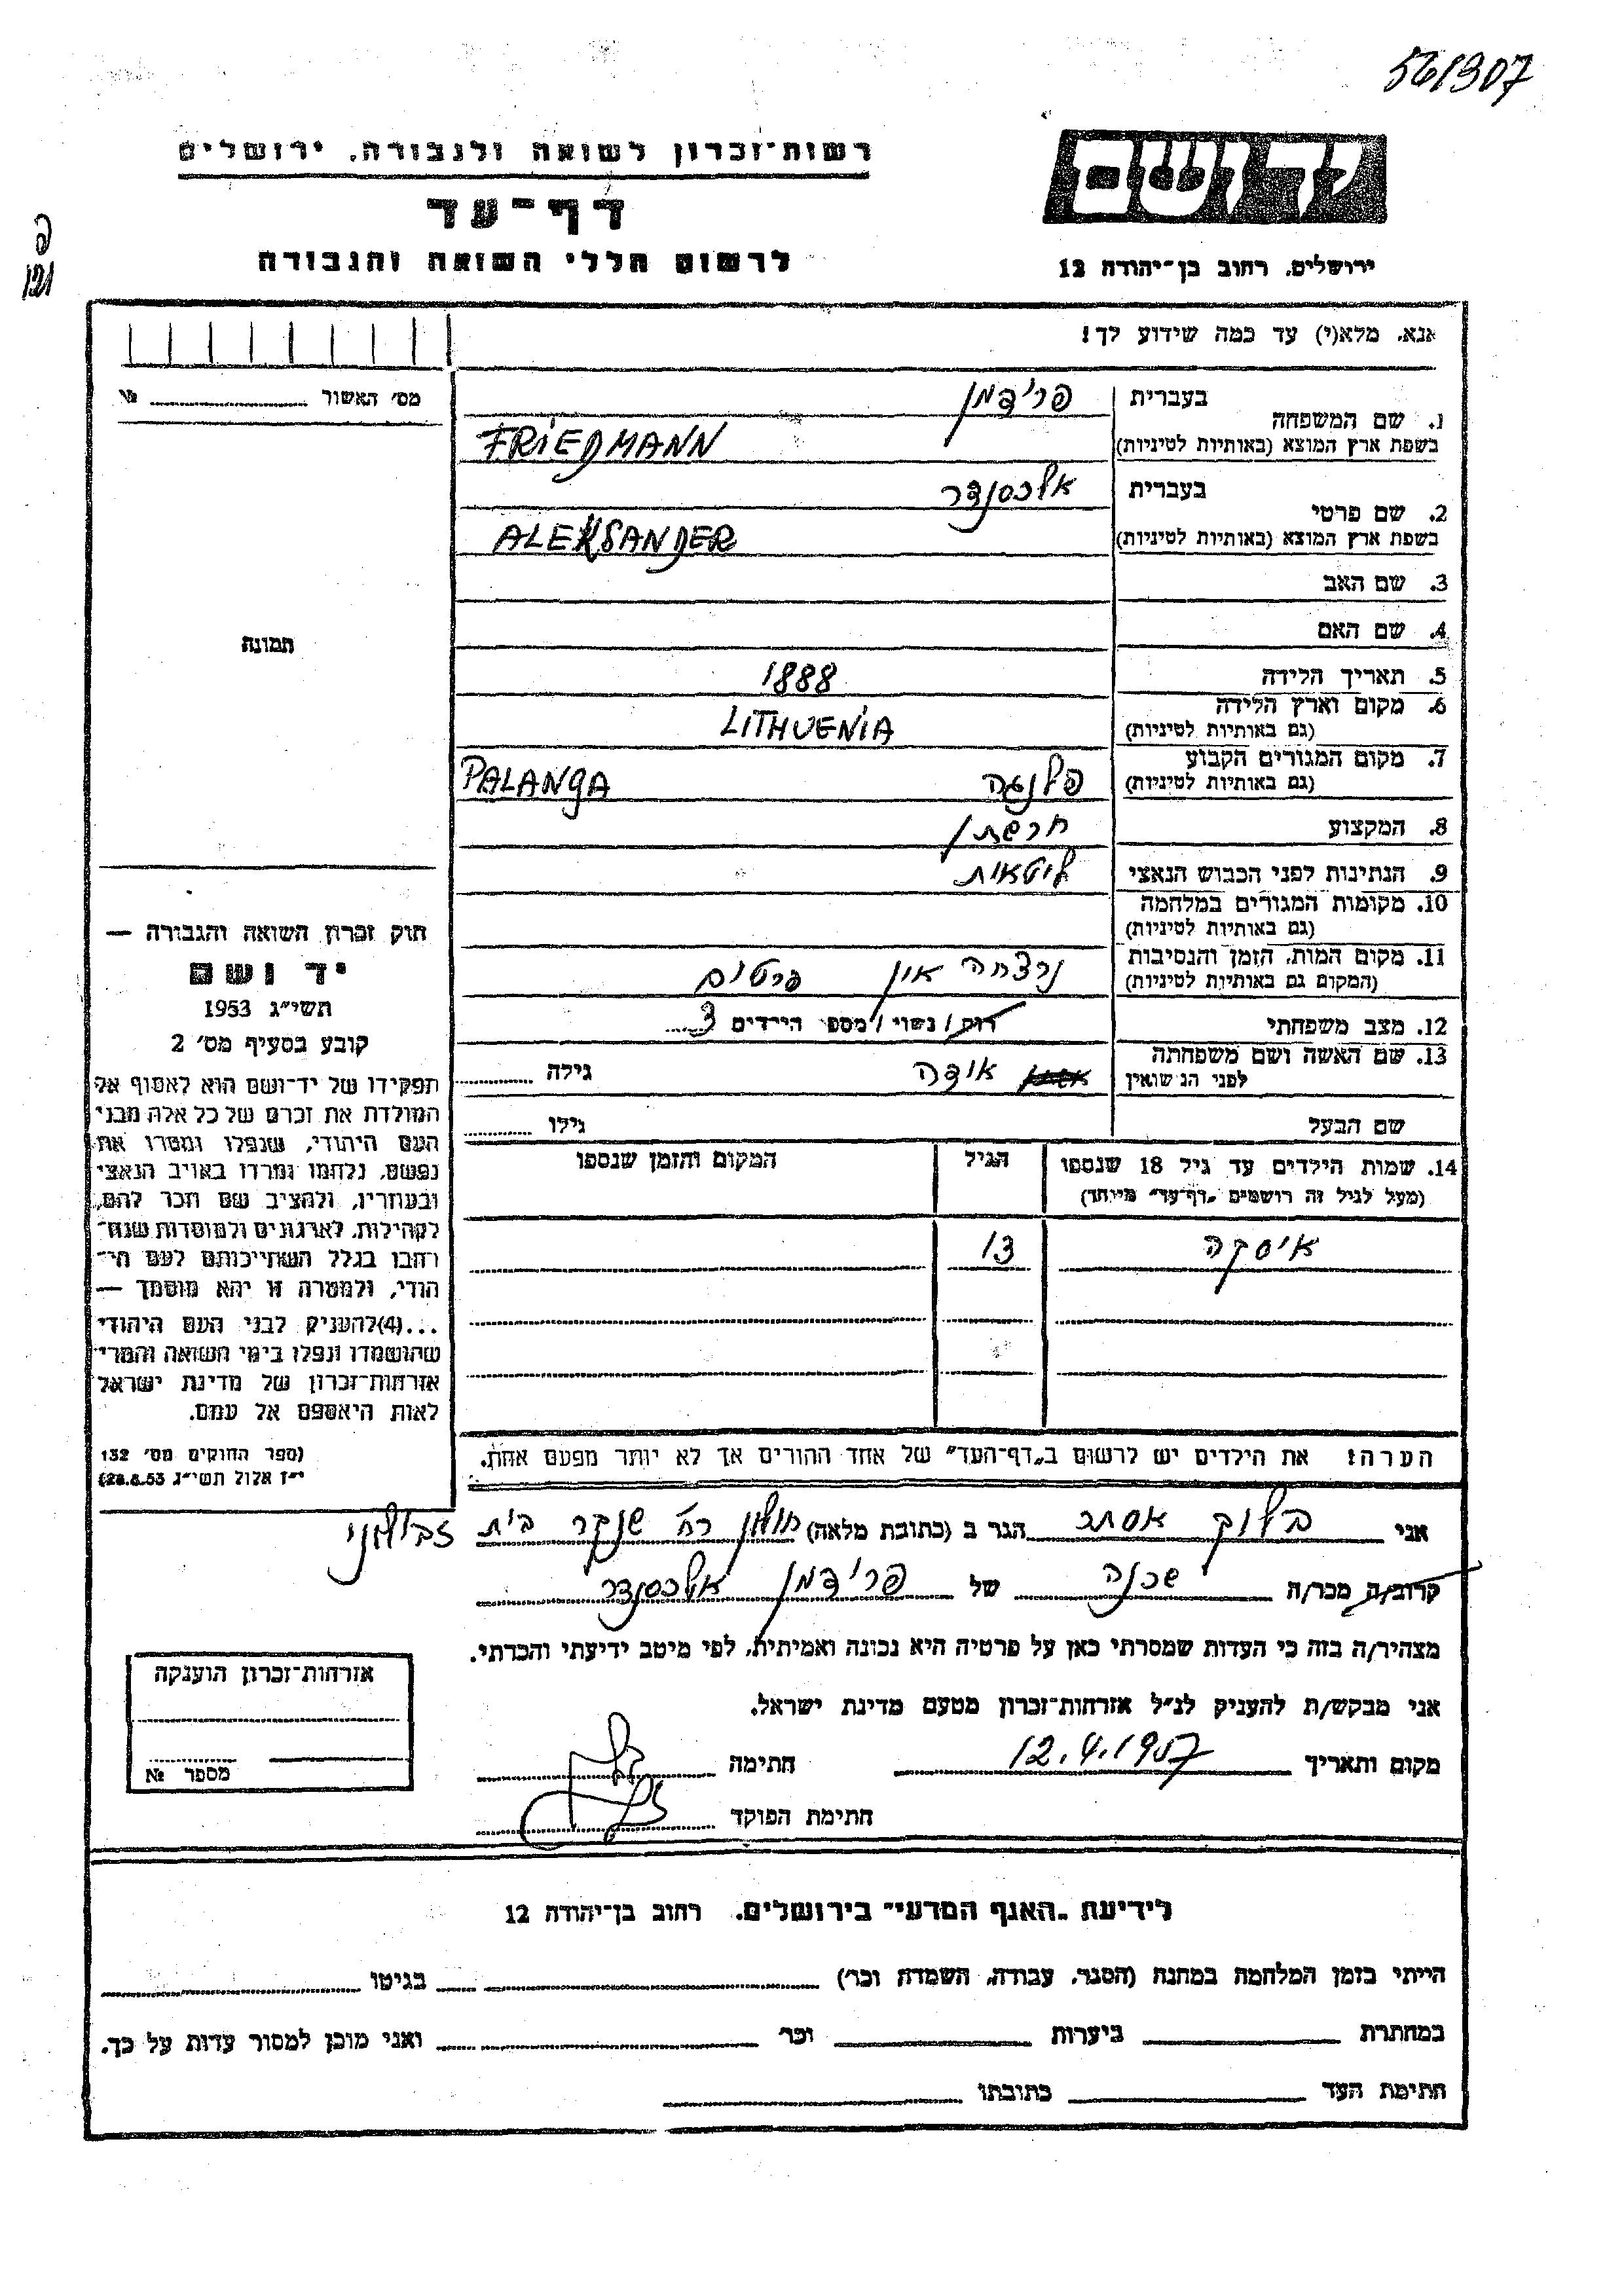 561307
רשות-זכרון לשואה ולגבורה, ירושלים
דף-עד
לרשום חללי השואה והגבורה
ידושם
ירושלים, רחוב בן-יהודה 12
פ
121
אנא, מלא(י) עד כמה שידוע לך!
מס׳ האשור № 
1. שם המשפחה
בעברית פרידמן
בשפת ארץ המוצא (באותיות לטיניות) FRIEDMANN
2. שם פרטי
בעברית אלכסנדר
בשפת ארץ המוצא (באותיות לטיניות) ALEKSANDER
3. שם האב
4. שם האם
תמונה
5. תאריך הלידה 1888
6. מקום וארץ הלידה (גם באותיות לטיניות) LITHUENIA
7. מקום המגורים הקבוע (גם באותיות לטיניות) פלנגה PALANGA
8. המקצוע חרשתן
9. הנתינות לפני הכבוש הנאצי ליטאית
10. מקומות המגורים במלחמה (גם באותיות לטיניות)
11. מקום המות, הזמן והנסיבות (המקום גם באותיות לטיניות) נרצחה אין פרטים
12. מצב משפחתי רוק/נשוי/מספ׳ הילדים 3
13. שם האשה ושם משפחתה לפני הנישואין אידה גילה
שם הבעל גילו
14. שמות הילדים עד גיל 18 שנספו הגיל המקום והזמן שנספו
(מעל לגיל זה רושמים "דף-עד" מיוחד)
איסקה 13
הערה: את הילדים יש לרשום ב"דף-העד" של אחד ההורים אך לא יותר מפעם אחת.
חוק זכרון השואה והגבורה —
יד ושם
תשי"ג 1953
קובע בסעיף מס׳ 2
תפקידו של יד-ושם הוא לאסוף אל
המולדת את זכרם של כל אלה מבני
העם היהודי, שנפלו ומסרו את
נפשם, נלחמו ומרדו באויב הנאצי
ובעוזריו, ולהציב שם וזכר להם,
לקהילות, לארגונים ולמוסדות שנח-
רבו בגלל השתייכותם לעם הי-
הודי, ולמטרה זו יהא מוסמך —
...(4)להעניק לבני העם היהודי
שהושמדו ונפלו בימי השואה והמרי
אזרחות-זכרון של מדינת ישראל
לאות היאספם אל עמם.
(ספר החוקים מס׳ 132
י"ז אלול תשי"ג 28.8.53)
אני בלוק אסתר הגר ב (כתובת מלאה) חולון רח׳ שנקר בית זבולוני
קרוב/ה מכר/ה שכנה של פרידמן אלכסנדר
מצהיר/ה בזה כי העדות שמסרתי כאן על פרטיה היא נכונה ואמיתית, לפי מיטב ידיעתי והכרתי.
אני מבקש/ת להעניק לנ"ל אזרחות-זכרון מטעם מדינת ישראל.
מקום ותאריך 12.4.1957 חתימה
חתימת הפוקד
אזרחות-זכרון הוענקה
מספר №
לידיעת "האגף המדעי" בירושלים, רחוב בן-יהודה 12
הייתי בזמן המלחמה במחנה (הסגר, עבודה, השמדה וכו׳) בגיטו
במחתרת ביערות וכו׳ ואני מוכן למסור עדות על כך.
חתימת העד כתובתו